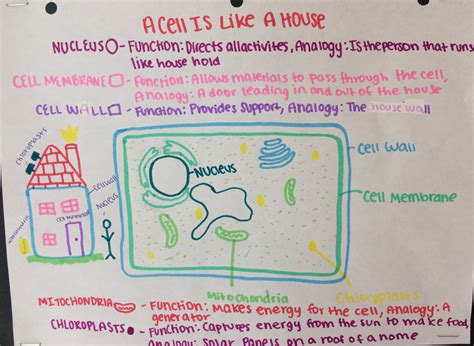 A Cell Is Like A House
Nucleus - Function: Directs all activites, Analogy: Is the person that runs
like house hold
Cell Membrane - Function: Allows materials to pass through the cell,
Analogy: A door leading in and out of the house
Cell Wall - Function: Provides Support, Analogy: The house wall
Chloroplasts
Cell wall
Nucleus
Cell Membrane
Nucleus
Cell Wall
Cell Membrane
Mitochondria
Chloroplasts
Mitochondria - Function: Makes energy for the cell, Analogy: A
generator
Chloroplasts - Function: Captures energy from the sun to make food,
Analogy: Solar Panels on a roof of a home